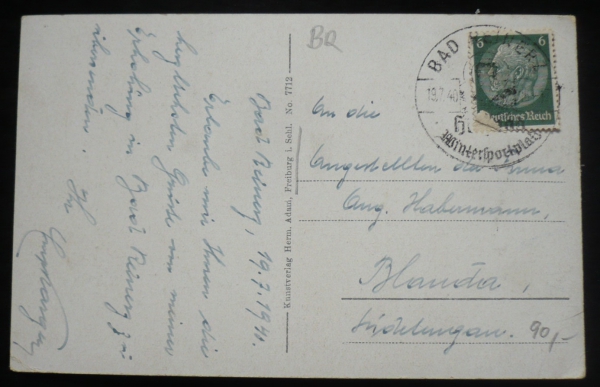 Bad Reinerz, 19.7.1940.
Erlaube mir Ihnen die
herzlichsten Grüße von meiner
Erholung in Bad Reinerz zu
übersenden. Ihr
Kunstverlag Herm. Adam, Freiburg i. Schl. No. 7712
BR
BAD REINERZ
19.7.40
Wintersportplatz
6 6
Deutsches Reich
An die
Angestellten der Firma
Aug. Habermann,
Blauda,
Sudetengau.
90,-